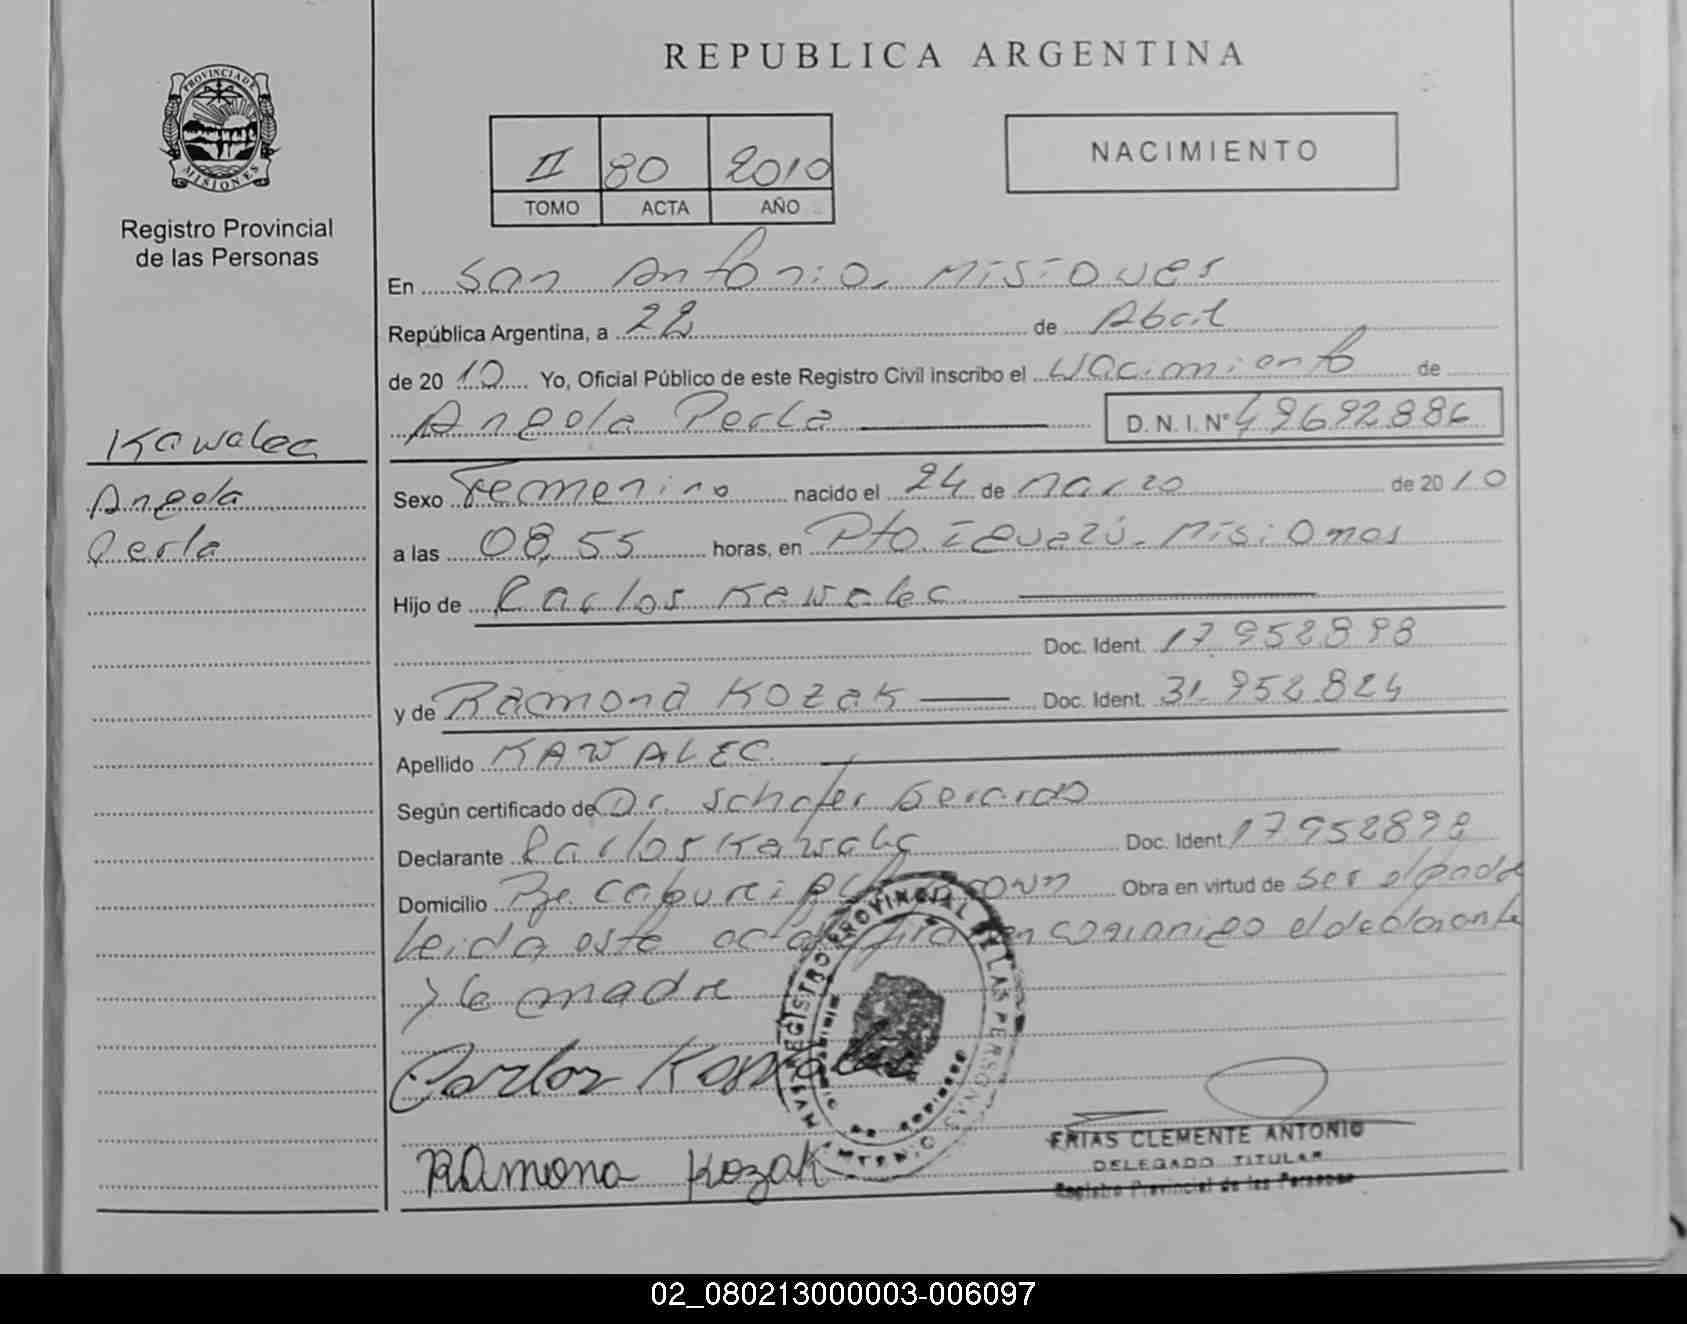 REPUBLICA ARGENTINA
PROVINCIA DE
MISIONES
Registro Provincial
de las Personas
II 80 2010
TOMO ACTA AÑO
NACIMIENTO
En San Antonio. Misiones
República Argentina, a 22 de Abril
de 20 10 Yo, Oficial Público de este Registro Civil inscribo el Nacimiento de
Angela Perla D. N. I. N° 49692886
Kawalec
Angela
Perla
Sexo Femenino nacido el 24 de Marzo de 20 10
a las 08,55 horas, en Pto. Iguazú. Misiones
Hijo de Carlos Kawalec
Doc. Ident. 17.952898
y de Ramona Kozak Doc. Ident. 31.952.824
Apellido KAWALEC
Según certificado de Dr. Schafer Gerardo
Declarante Carlos Kawalec Doc. Ident. 17952898
Domicilio Obra en virtud de ser el padre
leida este acta firman conmigo el declarante
y la madre
REGISTRO PROVINCIAL DE LAS PERSONAS
Carlos Kawalec
Ramona Kozak
FRIAS CLEMENTE ANTONIO
DELEGADO TITULAR
Registro Provincial de las Personas
02_080213000003-006097